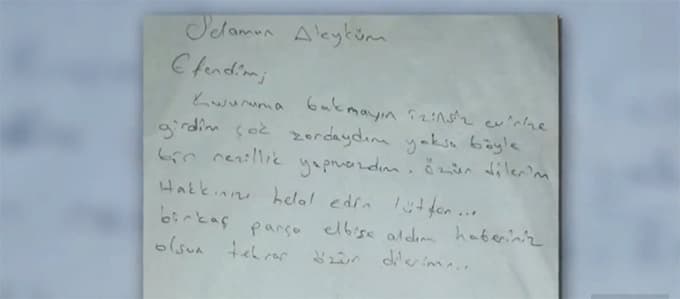 Selamun Aleyküm
Efendim;
Kusuruma bakmayın izinsiz evinize
girdim çok zordaydım yoksa böyle
bir rezillik yapmazdım. Özür dilerim
Hakkınızı helal edin lütfen...
birkaç parça elbise aldım haberiniz
olsun tekrar özür dilerim...